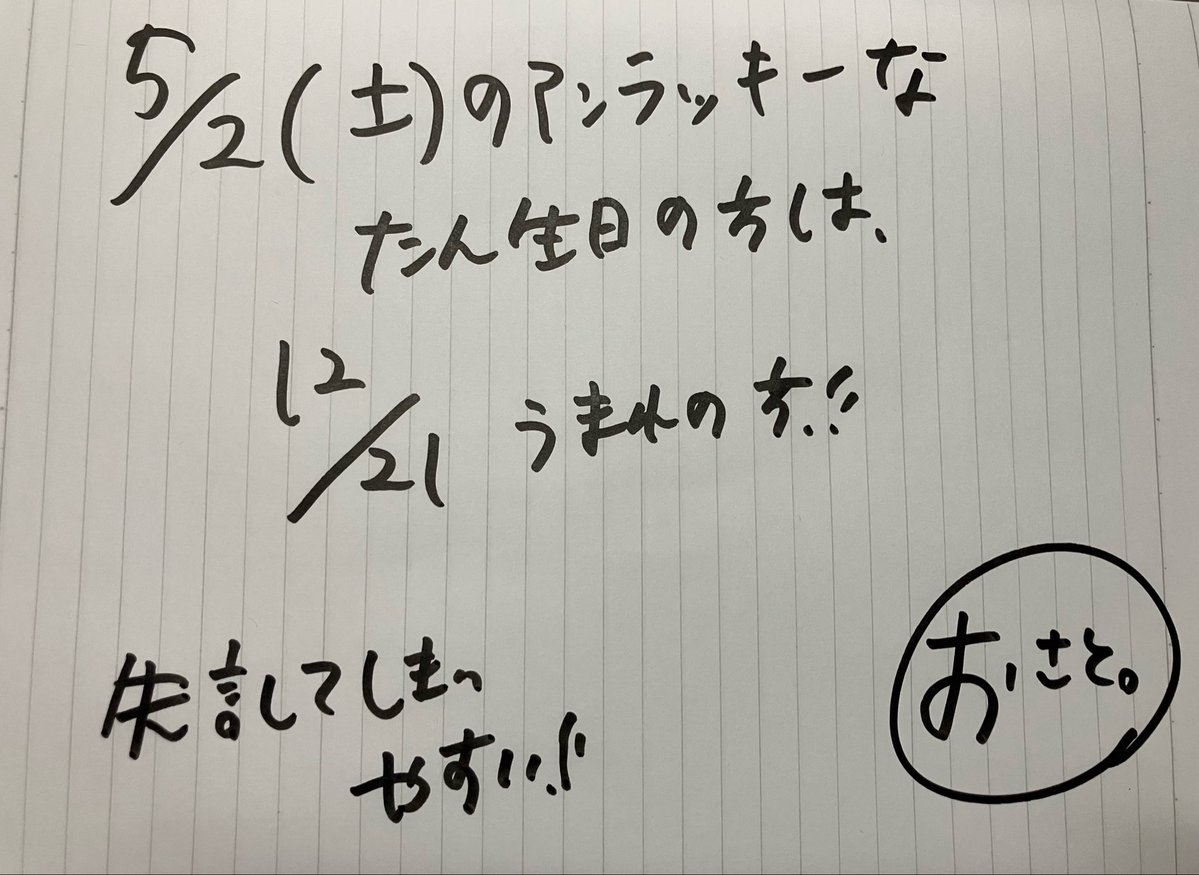 5/2(土)のアンラッキーな
たん生日の方は、
12/21 うまれの方!!
失言してしまい
やすい!!
おさと。